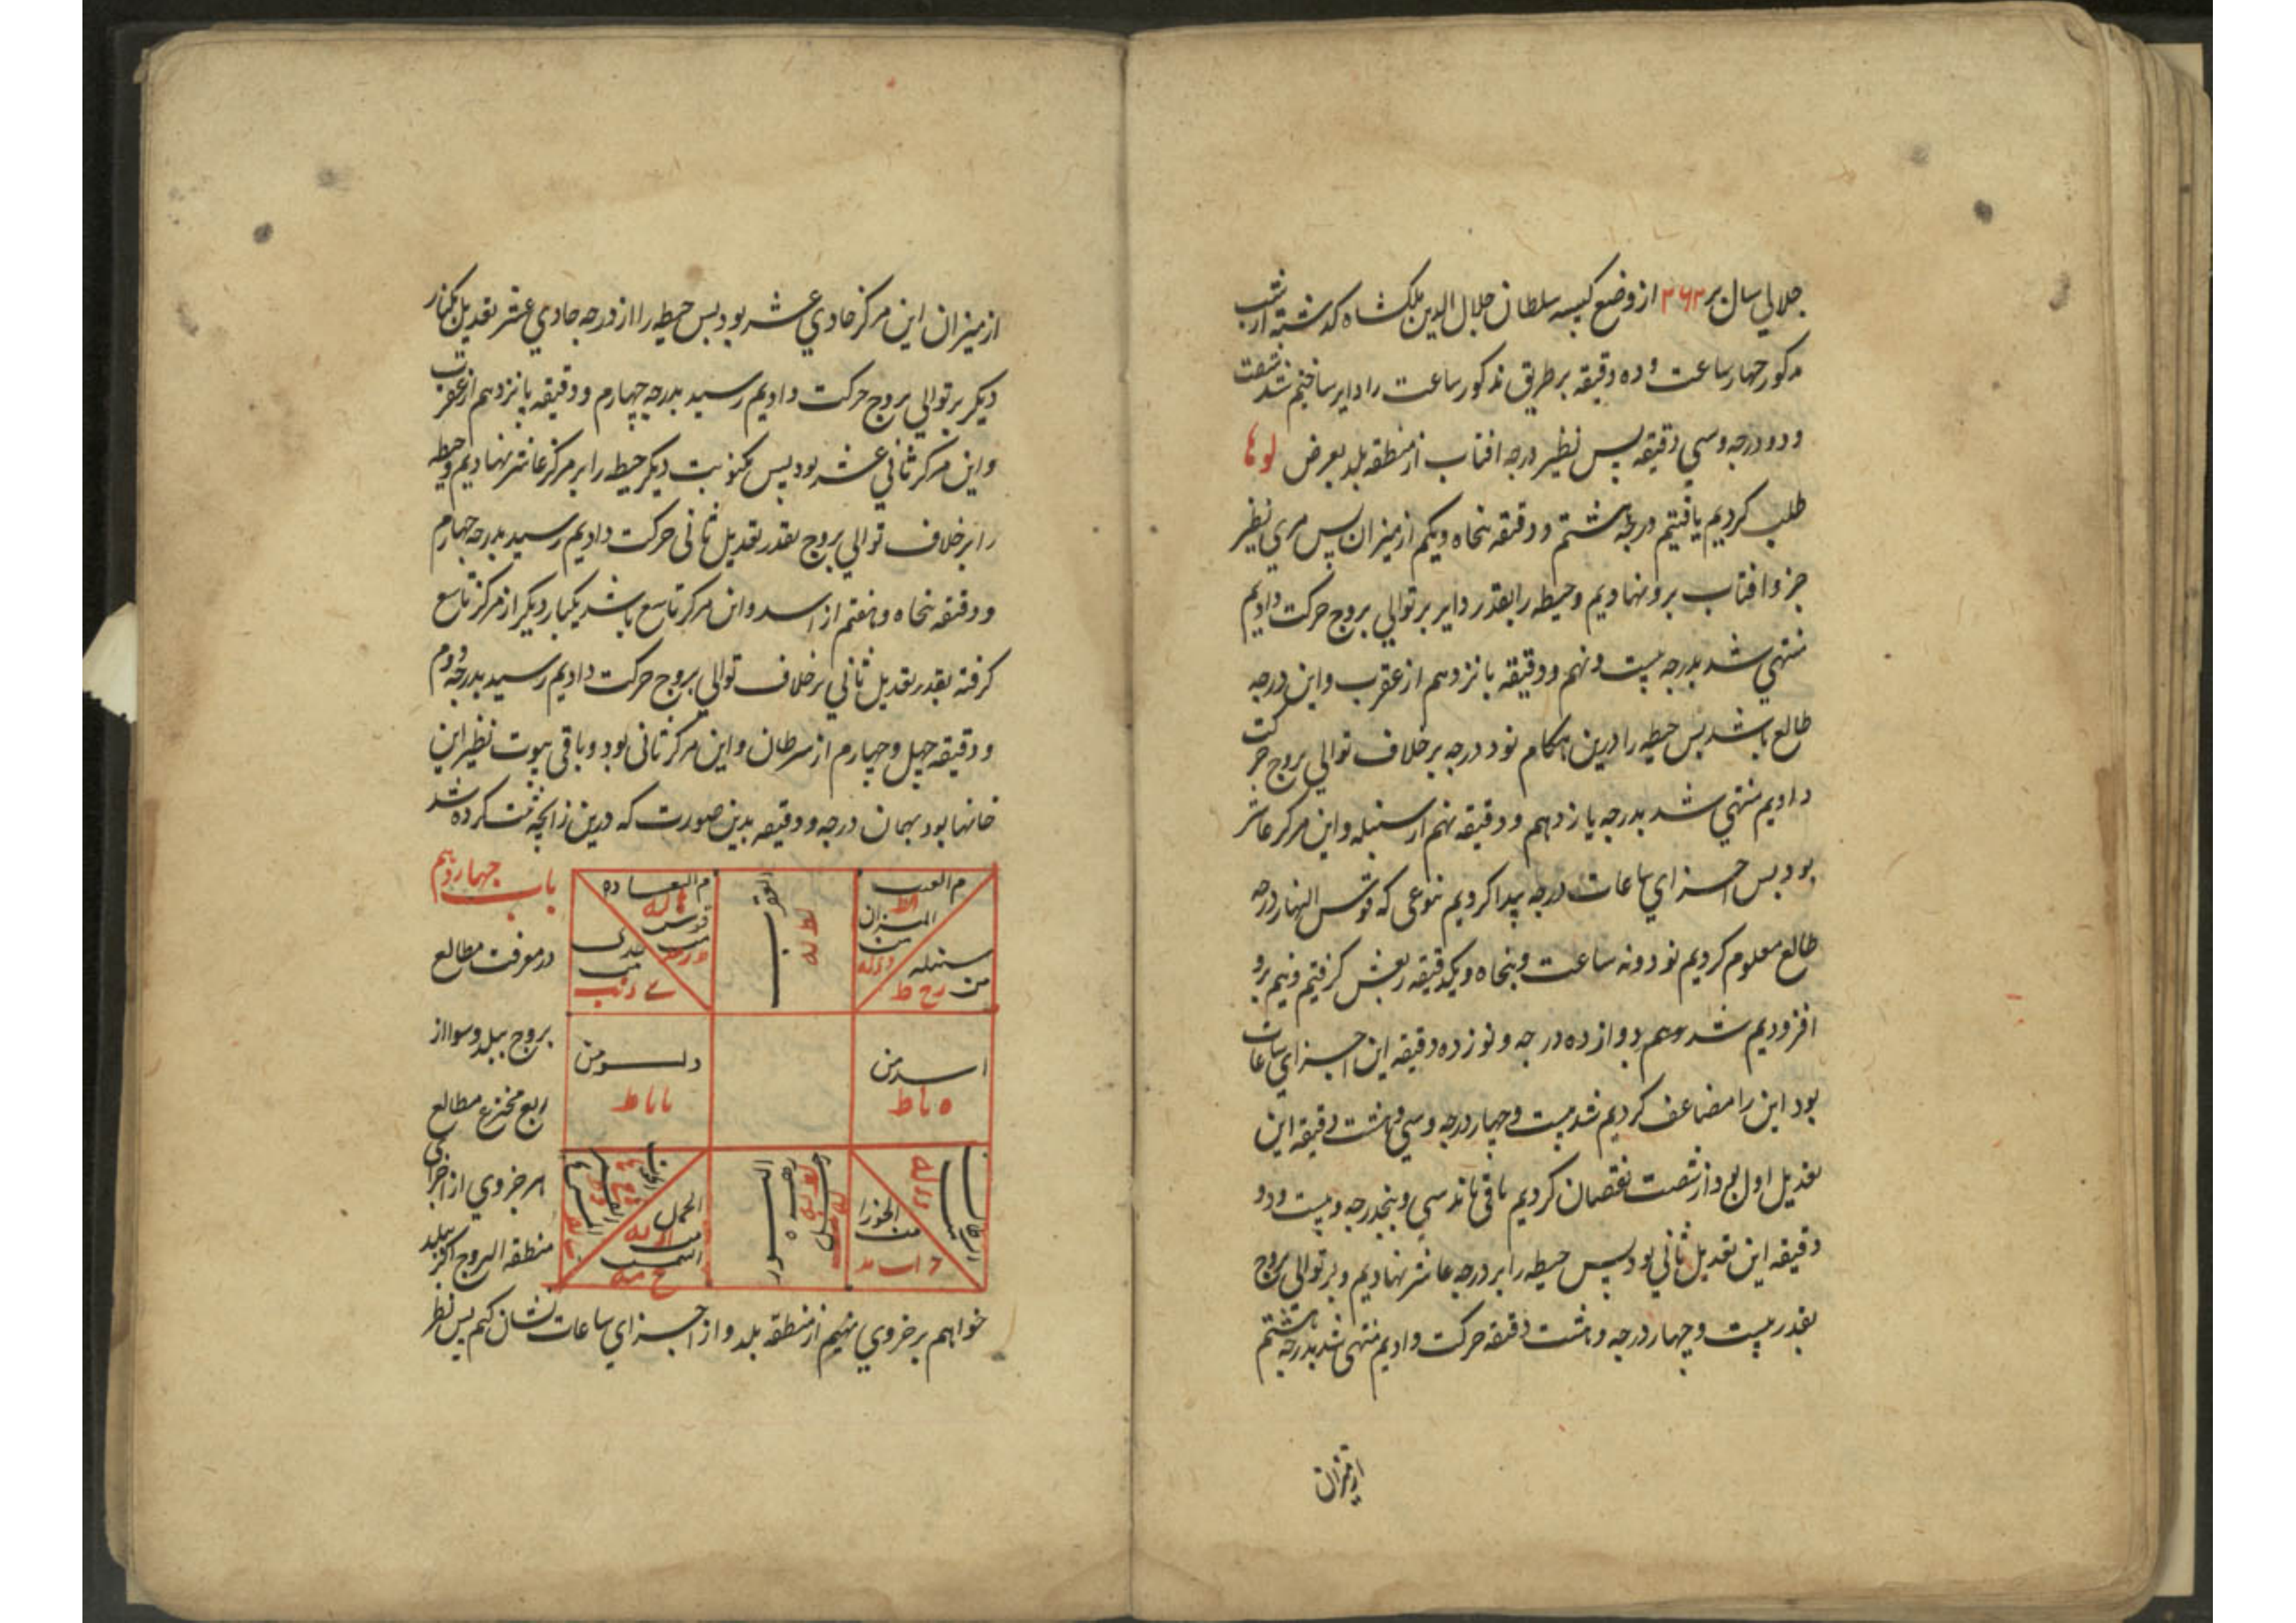 جلالی سال بر ۲۶۳ از وضع کبیسه سلطان جلال الدین ملکشاه کذشته از شب
مذکور چهار ساعت و ده دقیقه بر طریق مذکور ساعت را دایر ساختیم شد شصت
و دو درجه و سی دقیقه پس نظیر درجه افتاب از منطقه بلد بعرض
طلب کردیم یافتیم درجه هشتم و دقیقه پنجاه و یکم از میزان پس مری نظیر
جزو افتاب برو نهادیم و حیطه را بقدر دایر بر توالی بروج حرکت دادیم
منتهی شد بدرجه بیست و نهم و دقیقه پانزدهم از عقرب و این درجه
طالع باشد پس حیطه را درین هنکام نود درجه بر خلاف توالی بروج حرکت
دادیم منتهی شد بدرجه یازدهم و دقیقه نهم از سنبله و این مرکز عاشر
بود پس اجزای ساعات درجه پیدا کردیم بنوعی که قوس النهار درجه
طالع معلوم کردیم نود و نه ساعت و پنجاه و یکدقیقه ربعش کرفتیم و نیم برو
افزودیم شد دوازده درجه و نوزده دقیقه این اجزای ساعات
بود این را مضاعف کردیم شد بیست و چهار درجه و سی و هشت دقیقه این
تعدیل اول بود از شصت نقصان کردیم باقی ماند سی و پنجدرجه و بیست و دو
دقیقه این تعدیل ثانی بود پس حیطه را بر درجه عاشر نهادیم و بر توالی بروج
بقدر بیست و چهار درجه و هشت دقیقه حرکت دادیم منتهی شد بدرجه هشتم
از میزان
از میزان این مرکز حادی عشر بود پس حیطه را از درجه حادی عشر تعدیل یکبار
دیکر بر توالی بروج حرکت دادیم رسید بدرجه چهارم و دقیقه پانزدهم از عقرب
و این مرکز ثانی عشر بود پس یکنوبت دیکر حیطه را بر مرکز عاشر نهادیم و حیطه
را بر خلاف توالی بروج بقدر تعدیل ثانی حرکت دادیم رسید بدرجه چهارم
و دقیقه پنجاه و هفتم از اسد و این مرکز تاسع باشد یکبار دیکر از مرکز تاسع
کرفته بقدر تعدیل ثانی بر خلاف توالی بروج حرکت دادیم رسید بدرجه دوم
و دقیقه چهل و چهارم از سرطان و این مرکز ثانی بود و باقی بیوت نظیر این
خانها بود بهمان درجه و دقیقه بدین صورت که درین زایجه ثبت کرده شد
المیزان
سنبله
العقرب
قوس
جدی
اسد من
دلو من
الجوزا
الحمل
الثور
باب چهاردهم
در معرفت مطالع
بروج ببلد و سوا از
ربع مخترع مطالع
هر جزوی از اجزای
منطقه البروج اکر ببلد
خواهیم بر جزوی نهیم از منطقه بلد و از اجزای ساعات نشان کنیم پس نظر